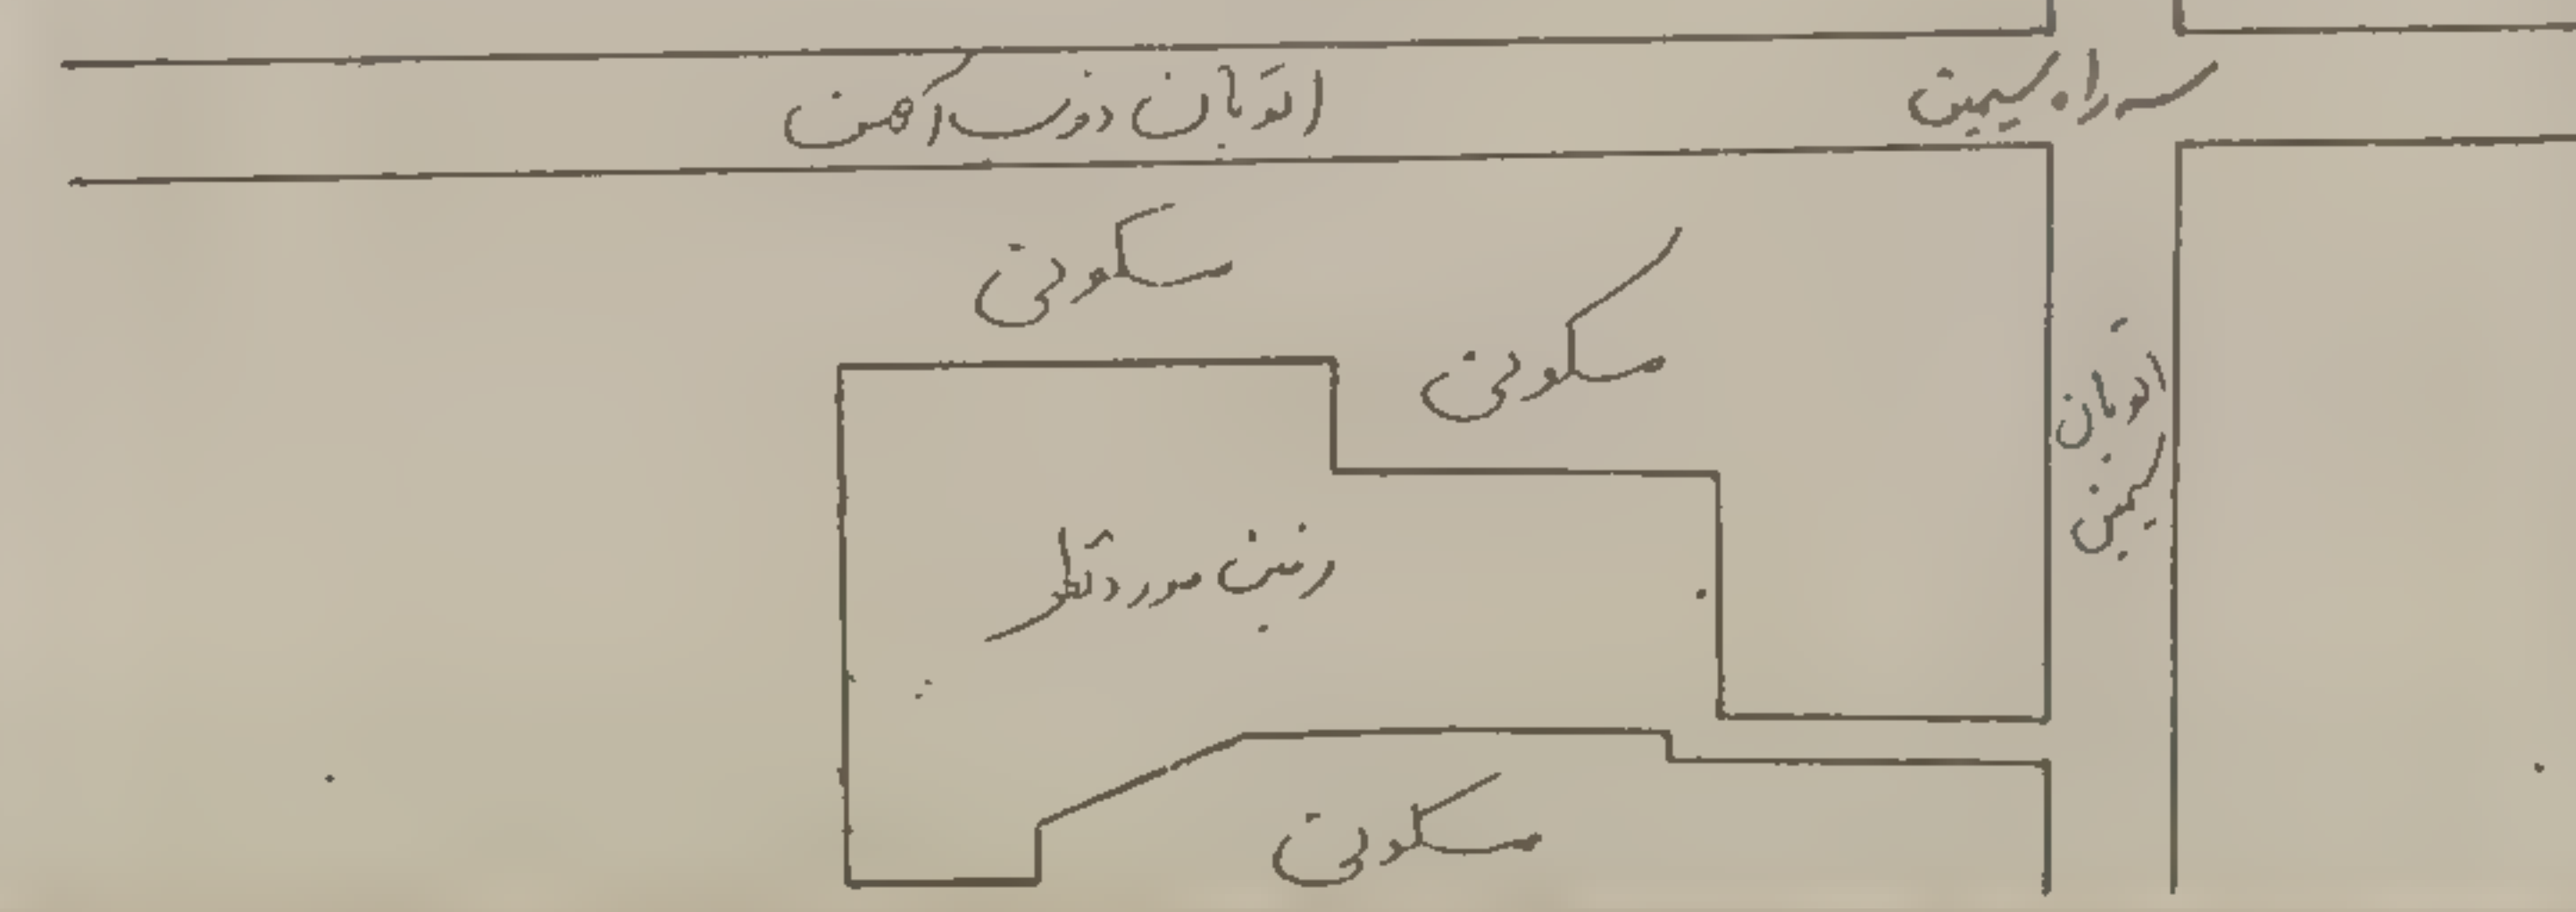 سه راه سیمین
اتوبان ذوب آهن
مسکونی
مسکونی
اتوبان
سیمین
زمین مورد نظر
مسکونی